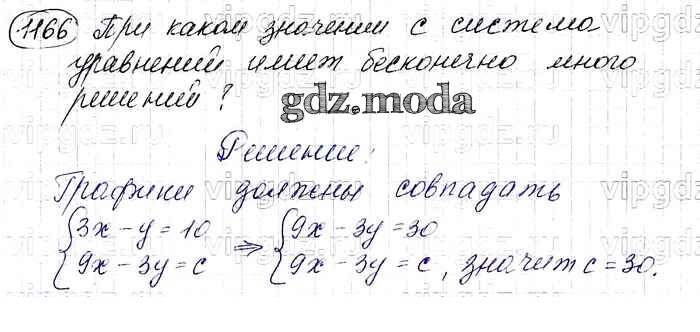 1166 При каком значении c система
уравнений имеет бесконечно много
решений?
gdz.moda
Решение:
Графики должны совпадать
{3x - y = 10 ⇒ {9x - 3y = 30
{9x - 3y = c {9x - 3y = c, значит c = 30.
vipgdz
vipgdz.ru